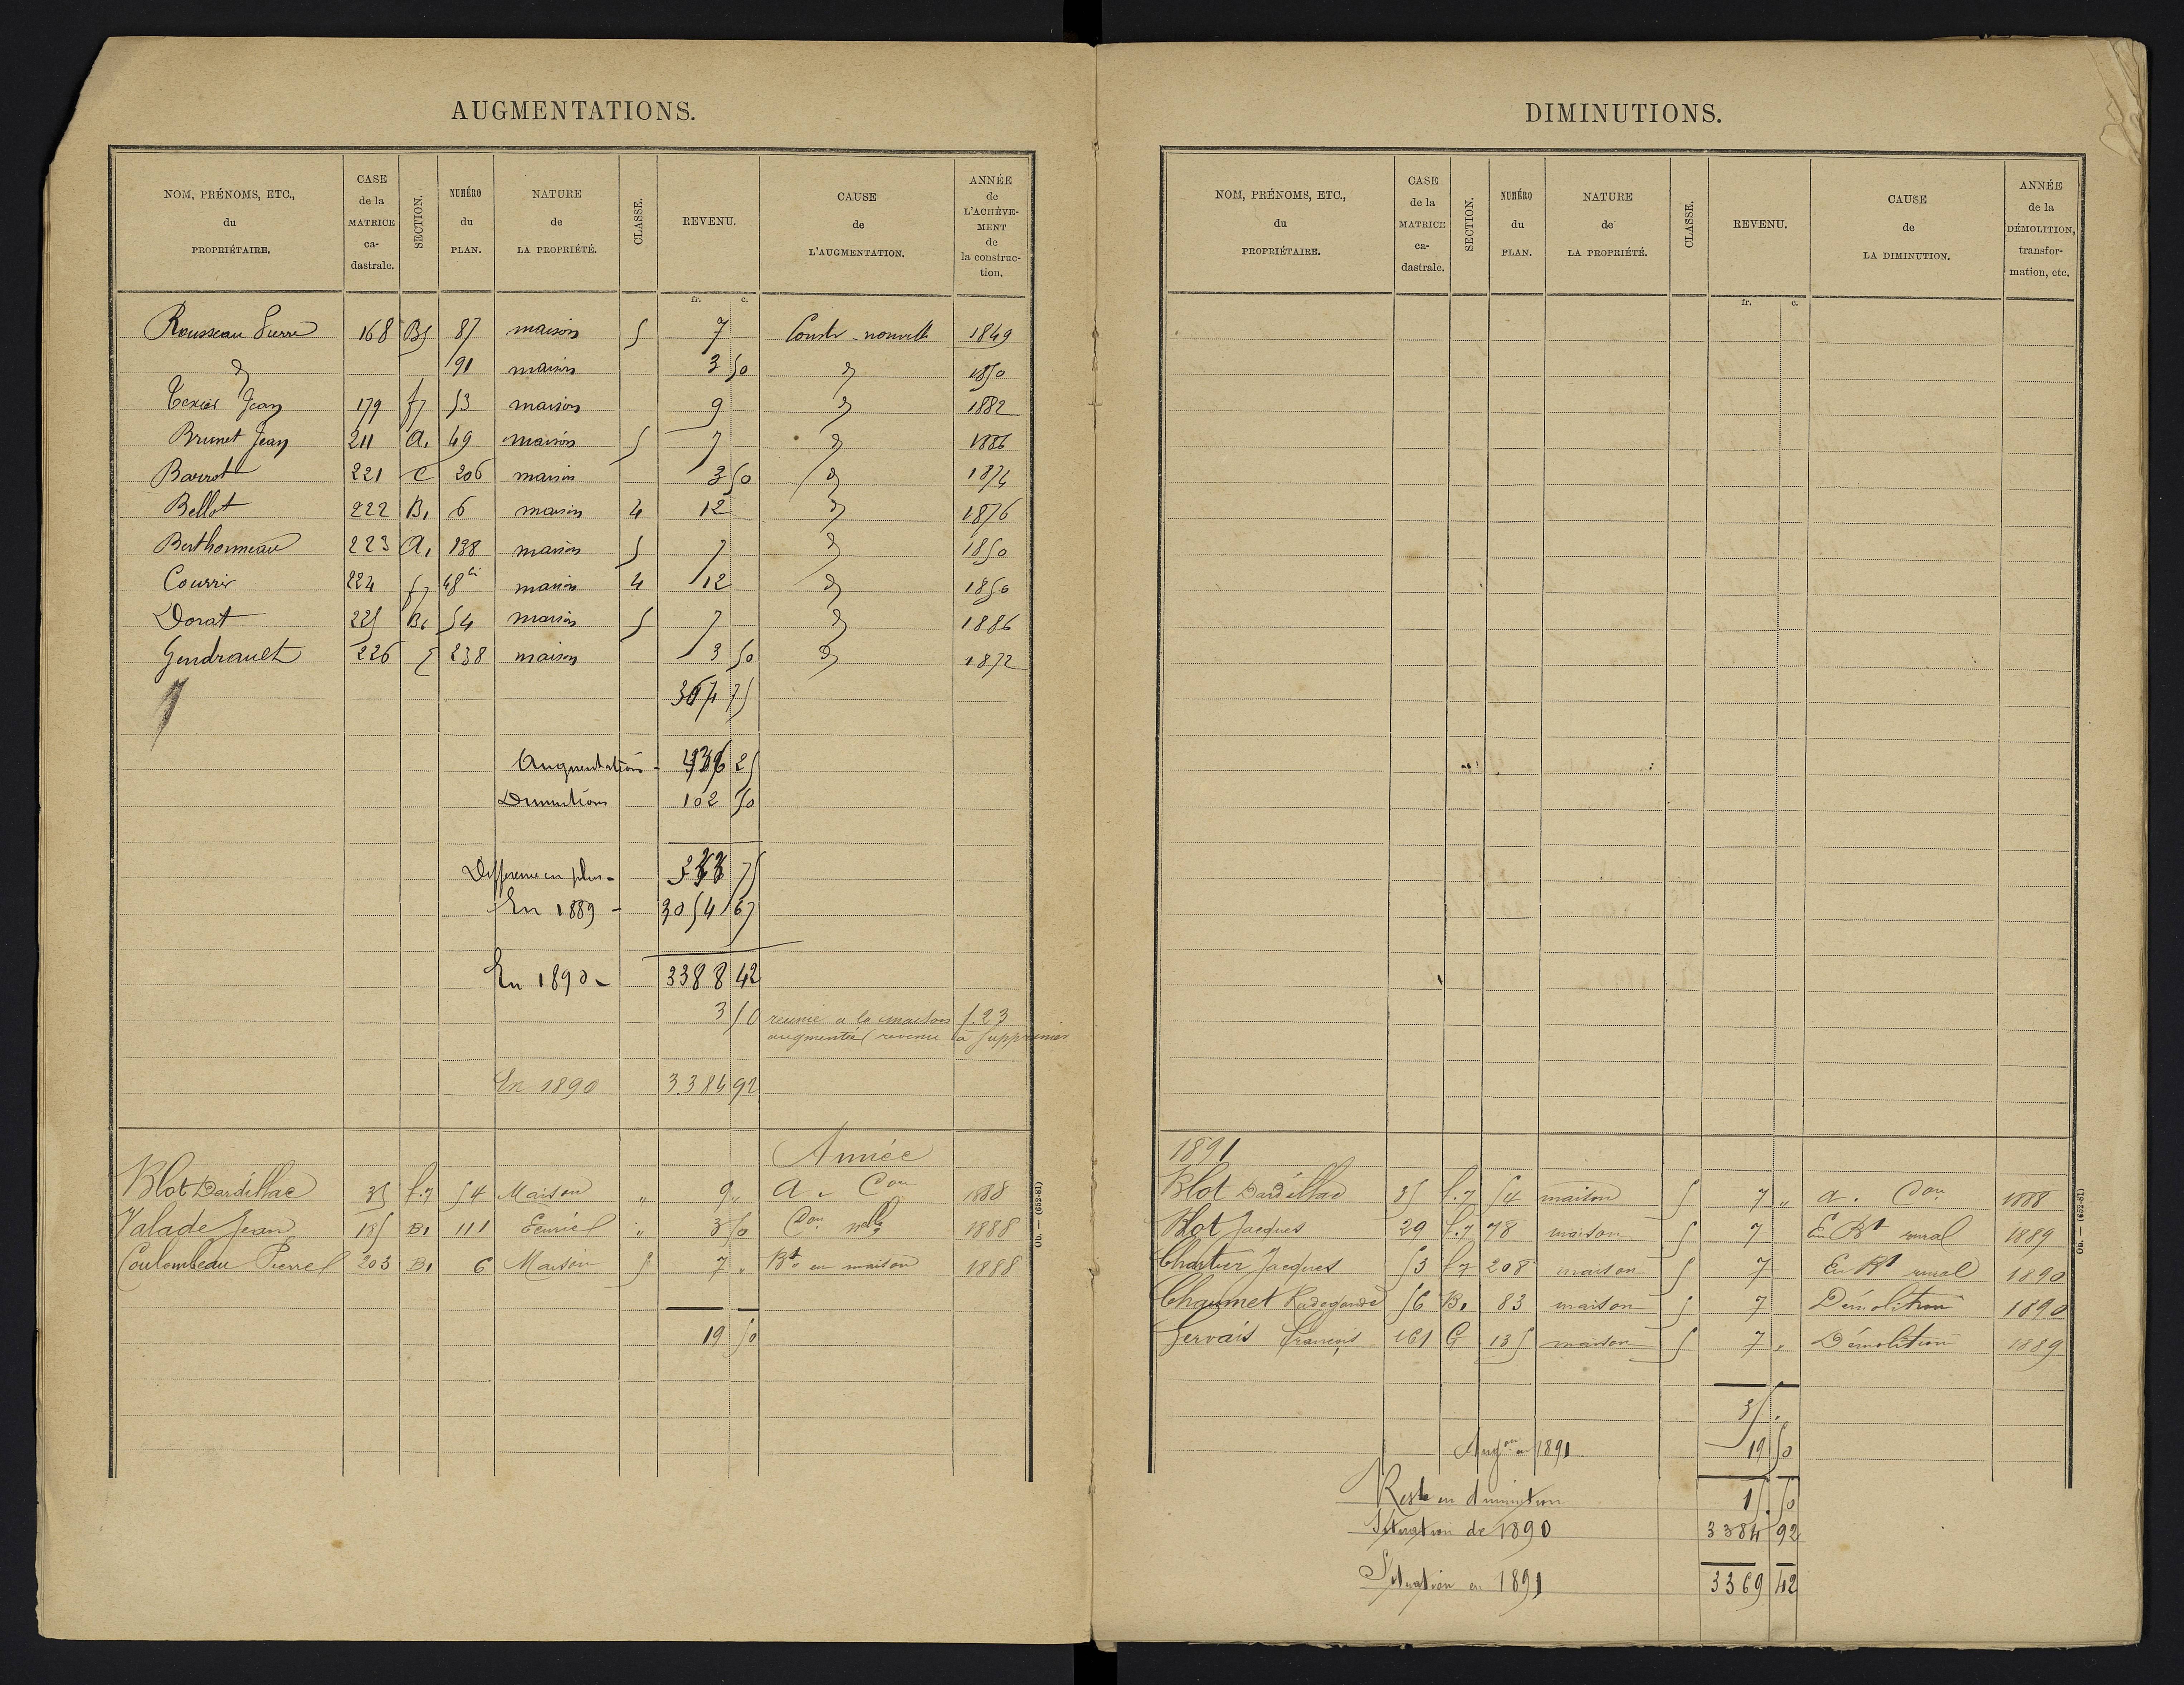 AUGMENTATIONS.
NOM, PRÉNOMS, ETC., du PROPRIÉTAIRE. | CASE de la MATRICE ca-dastrale. | SECTION. | NUMÉRO du PLAN. | NATURE de LA PROPRIÉTÉ. | CLASSE. | REVENU. | CAUSE de L'AUGMENTATION. | ANNÉE de L'ACHÈVE-MENT de la construc-tion.
fr. c.
Rousseau Pierre 168 B5 87 maison 5 7 Constr. nouvelle 1849
d 91 maison 3 50 d 1850
Texier Jean 179 f7 53 maison 9 d 1882
Brunet Jean 211 A1 49 maison 5 7 d 1886
Barrot 221 C 206 maison 3 50 d 1874
Bellot 222 B1 6 maison 4 12 d 1876
Berthonneau 223 A1 138 maison 5 7 d 1850
Courrir 224 f7 48 bis maison 4 12 d 1850
Dorat 225 B1 54 maison 5 7 d 1886
Gendrault 226 E 238 maison 3 50 d 1872
75
Augmentations - 436 25
Diminutions 102 50
Difference en plus - 333 75
En 1889 - 3054 67
En 1890 - 3388 42
3 50 reunie a la maison f. 23
augmentée (revenu à supprimer
En 1890 3384 92
Année
Blot Dardillac 35 f.7 54 Maison " 9 " A. Con 1888
Valade Jean 185 B1 111 Ecurie " 3 50 Con nelle 1888
Coulombeau Pierre 203 B1 6 Maison 5 7 " Bt en maison 1888
19 50
Ob. — (652-81)
DIMINUTIONS.
NOM, PRÉNOMS, ETC., du PROPRIÉTAIRE. | CASE de la MATRICE ca-dastrale. | SECTION. | NUMÉRO du PLAN. | NATURE de LA PROPRIÉTÉ. | CLASSE. | REVENU. | CAUSE de LA DIMINUTION. | ANNÉE de la DÉMOLITION, transfor-mation, etc.
fr. c.
1891
Blot Dardillac 35 f.7 54 maison 5 7 " a. Con 1888
Blot Jacques 29 f.7 78 maison 5 7 En Bt rural 1889
Chartier Jacques 53 f7 208 maison 5 7 En Bt rural 1890
Chaumet Radegonde 56 B1 83 maison 5 7 Démolition 1890
Gervais François 161 G 135 maison 5 7 " Démolition 1889
35 "
Augon en 1891 19 50
Reste en diminution 15 50
Situation de 1890 3384 92
Situation en 1891 3369 42
Ob. — (652-81)